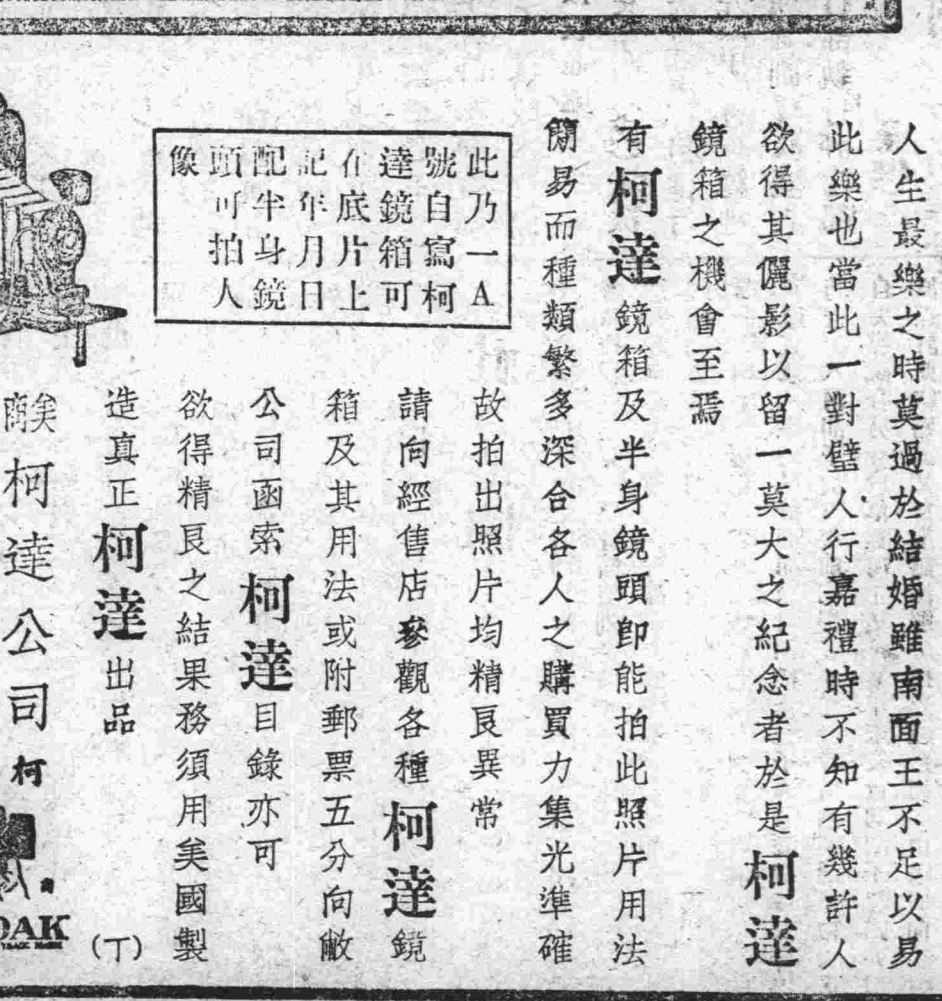 人生最樂之時莫過於結婚雖南面王不足以易
此樂也當此一對璧人行嘉禮時不知有幾許人
欲得其儷影以留一莫大之紀念者於是柯達
鏡箱之機會至焉
有柯達鏡箱及半身鏡頭卽能拍此照片用法
簡易而種類繁多深合各人之購買力集光準確
故拍出照片均精良異常
請向經售店參觀各種柯達鏡
箱及其用法或附郵票五分向敝
公司函索柯達目錄亦可
欲得精良之結果務須用美國製
造真正柯達出品
(丁)
此乃一A
號自寫柯
達鏡箱可
在底片上
記年月日
配半身鏡
頭可拍人
像
美商柯達公司
柯
DAK
TRADE MARK